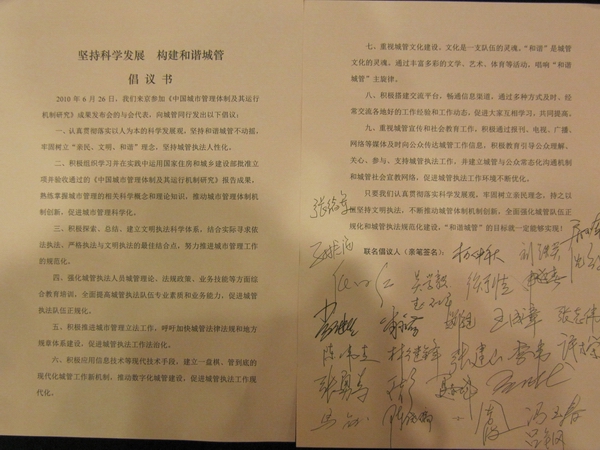 坚持科学发展　构建和谐城管
倡 议 书
2010 年 6 月 26 日，我们来京参加《中国城市管理体制及其运行
机制研究》成果发布会的与会代表，向城管同行发出以下倡议：
一、认真贯彻落实以人为本的科学发展观，坚持和谐城管不动摇，
牢固树立“亲民、文明、和谐”理念，坚持城管执法人性化。
二、积极组织学习并在实践中运用国家住房和城乡建设部批准立
项并验收通过的《中国城市管理体制及其运行机制研究》报告成果，
熟练掌握城市管理的相关科学概念和理论知识，推动城市管理体制机
制创新，促进城市管理科学化。
三、积极探索、总结、建立文明执法科学体系，结合实际寻求依
法执法、严格执法与文明执法的最佳结合点，努力推进城市管理工作
的规范化。
四、强化城管执法人员城管理论、法规政策、业务技能等方面综
合教育培训，全面提高城管执法队伍专业素质和业务能力，促进城管
执法队伍正规化。
五、积极推进城市管理立法工作，呼吁加快城管法律法规和地方
规章体系建设，促进城管执法工作法治化。
六、积极应用信息技术等现代技术手段，建立一盘棋、管到底的
现代化城管工作新机制，推动数字化城管建设，促进城管执法工作现
代化。
七、重视城管文化建设。文化是一支队伍的灵魂。“和谐”是城管
文化的灵魂。通过丰富多彩的文学、艺术、体育等活动，唱响“和谐
城管”主旋律。
八、积极搭建交流平台，畅通信息渠道，通过多种方式及时、经
常交流各地好的工作经验和工作动态，促进大家互相学习、共同提高。
九、重视城管宣传和社会教育工作，积极通过报刊、电视、广播、
网络等媒体及时向公众传达城管工作信息，积极教育引导公众理解、
关心、参与、支持城管执法工作，并建立城管与公众常态化沟通机制
和城管社会宣教网络，促进城管执法工作环境不断优化。
只要我们认真贯彻落实科学发展观，牢固树立亲民理念，持之以
恒坚持文明执法，不断推动城管体制机制创新，全面强化城管队伍正
规化和城管执法规范化建设，“和谐城管”的目标就一定能够实现！
联名倡议人（亲笔签名）：